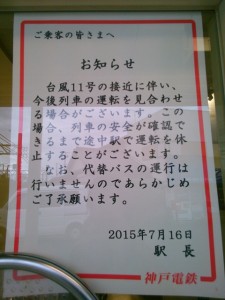 ご乗客の皆さまへ
お知らせ
台風11号の接近に伴い、
今後列車の運転を見合わせ
る場合がございます。この
場合、列車の安全が確認で
きるまで途中駅で運転を休
止することがございます。
なお、代替バスの運行は
行いませんのであらかじめ
ご了承願います。
2015年7月16日
駅長
神戸電鉄